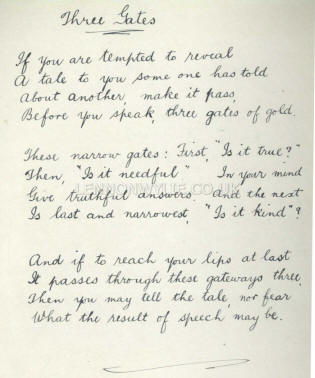 Three Gates
If you are tempted to reveal
A tale to you some one has told
About another, make it pass,
Before you speak, three gates of gold.
These narrow gates: First, "Is it true?"
Then, "Is it needful" In your mind
Give truthful answers. And the next
LENNONWYLIE.CO.UK
Is last and narrowest, "Is it kind"?
And if to reach your lips at last
It passes through these gateways three,
Then you may tell the tale, nor fear
What the result of speech may be.